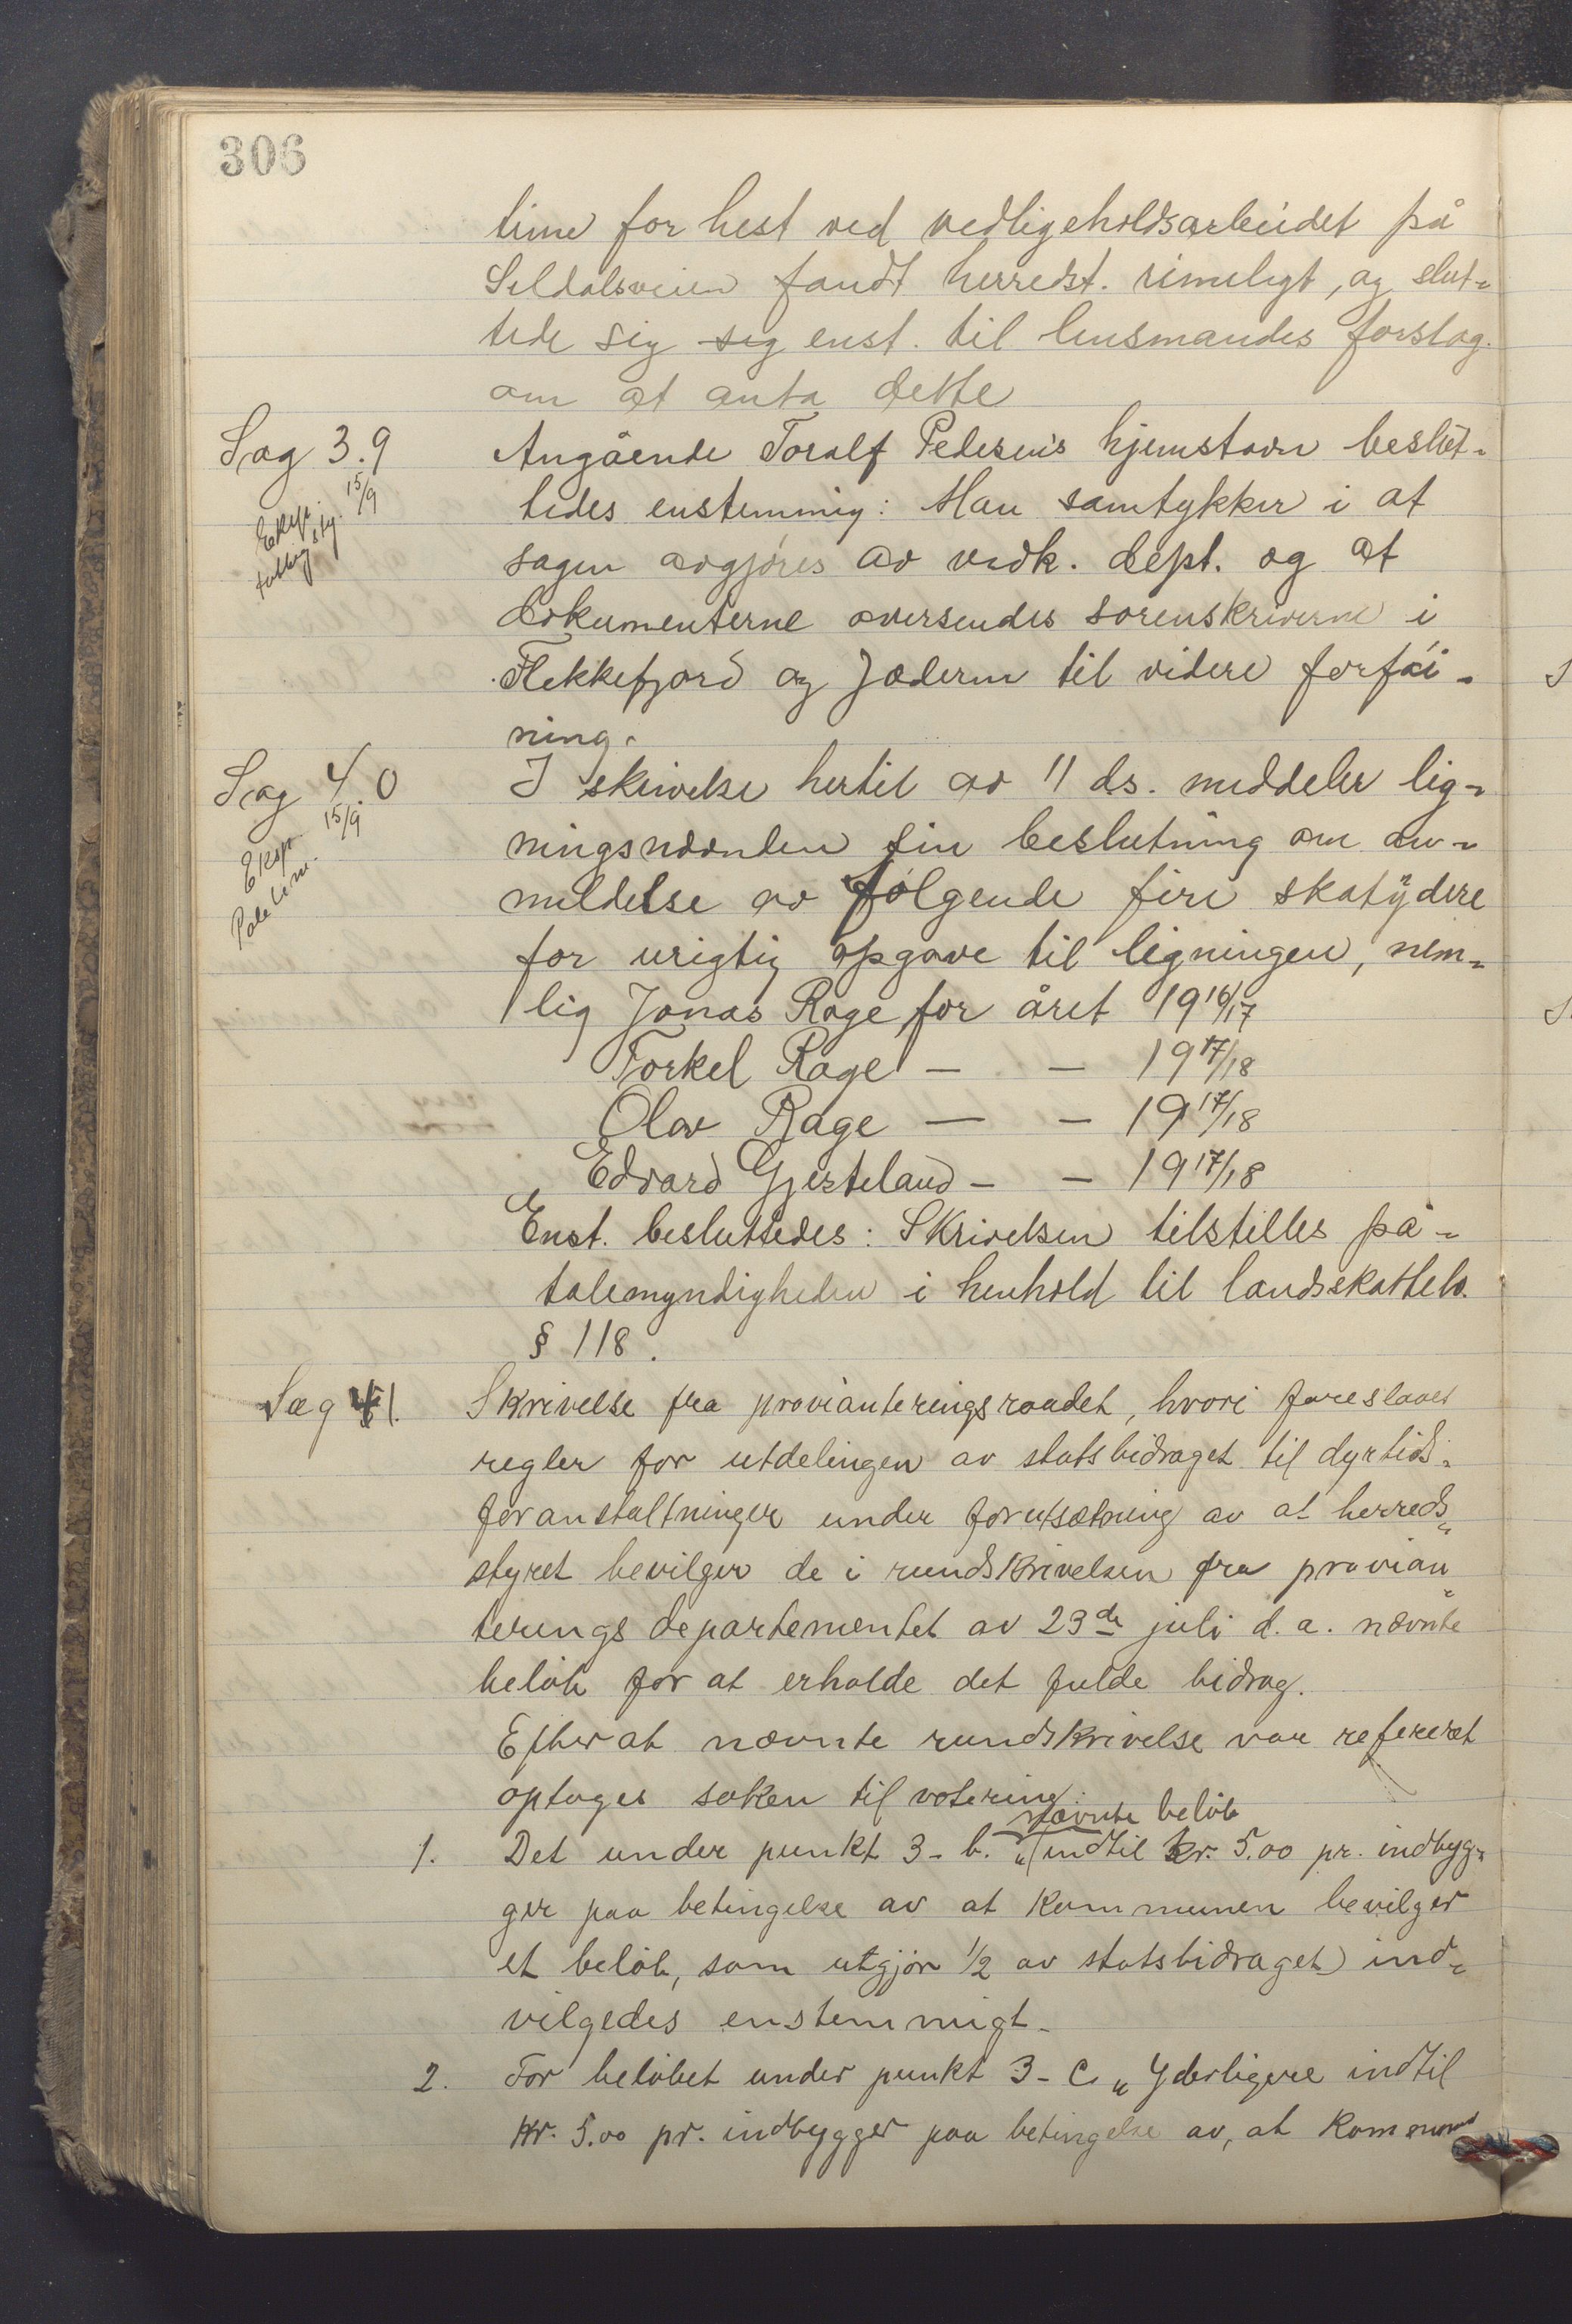 306
time for hest ved vedligeholdsarbeidet på
Seldalsveien fandt herredst. rimeligt, og slut-
tede sig seg enst. til lensmandes forslag.
om at anta dette
Sag 3.9
15/9
Eksp.
Angående Toralf Pedersens hjemstavn beslut-
tedes enstemmig: Man samtykker i at
sagen avgjøres av vedk. dept. og at
dokumenterne oversendes sorenskriverne i
Flekkefjord og Jæderen til videre forføi-
ning.
Sag 4.0
15/9
Eksp.
I skrivelse hertil av 11 ds. meddeler lig-
ningsnævnden sin beslutning om an-
meldelse av følgende fire skatydere
for urigtig opgave til ligningen, nem-
lig Jonas Rage for året 1916/17
Torkel Rage — — 1917/18
Olav Rage — — 1917/18
Edvard Gjesteland — — 1917/18
Enst. besluttedes: Skrivelsen tilstilles på-
talemyndigheden i henhold til landsskattelo.
§ 118.
Sag 41.
Skrivelse fra provianteringsraadet, hvori foreslaaes
regler for utdelingen av statsbidraget til dyrtids-
foranstaltninger under forutsætning av at herreds-
styret bevilger de i rundskrivelsen fra provian-
teringsdepartementet av 23de juli d.a. nævnte
beløb for at erholde det fulde bidrag.
Efterat nævnte rundskrivelse var referert
optages saken til votering.
nævnte beløb
1. Det under punkt 3 - b. „(indtil kr. 5.00 pr. indbyg-
ger paa betingelse av at kommunen bevilger
et beløb, som utgjør 1/2 av statsbidraget) ind-
vilgedes enstemmigt.
2. For beløbet under punkt 3 - C. „Yderligere indtil
kr. 5.00 pr. indbygger paa betingelse av, at kommunen